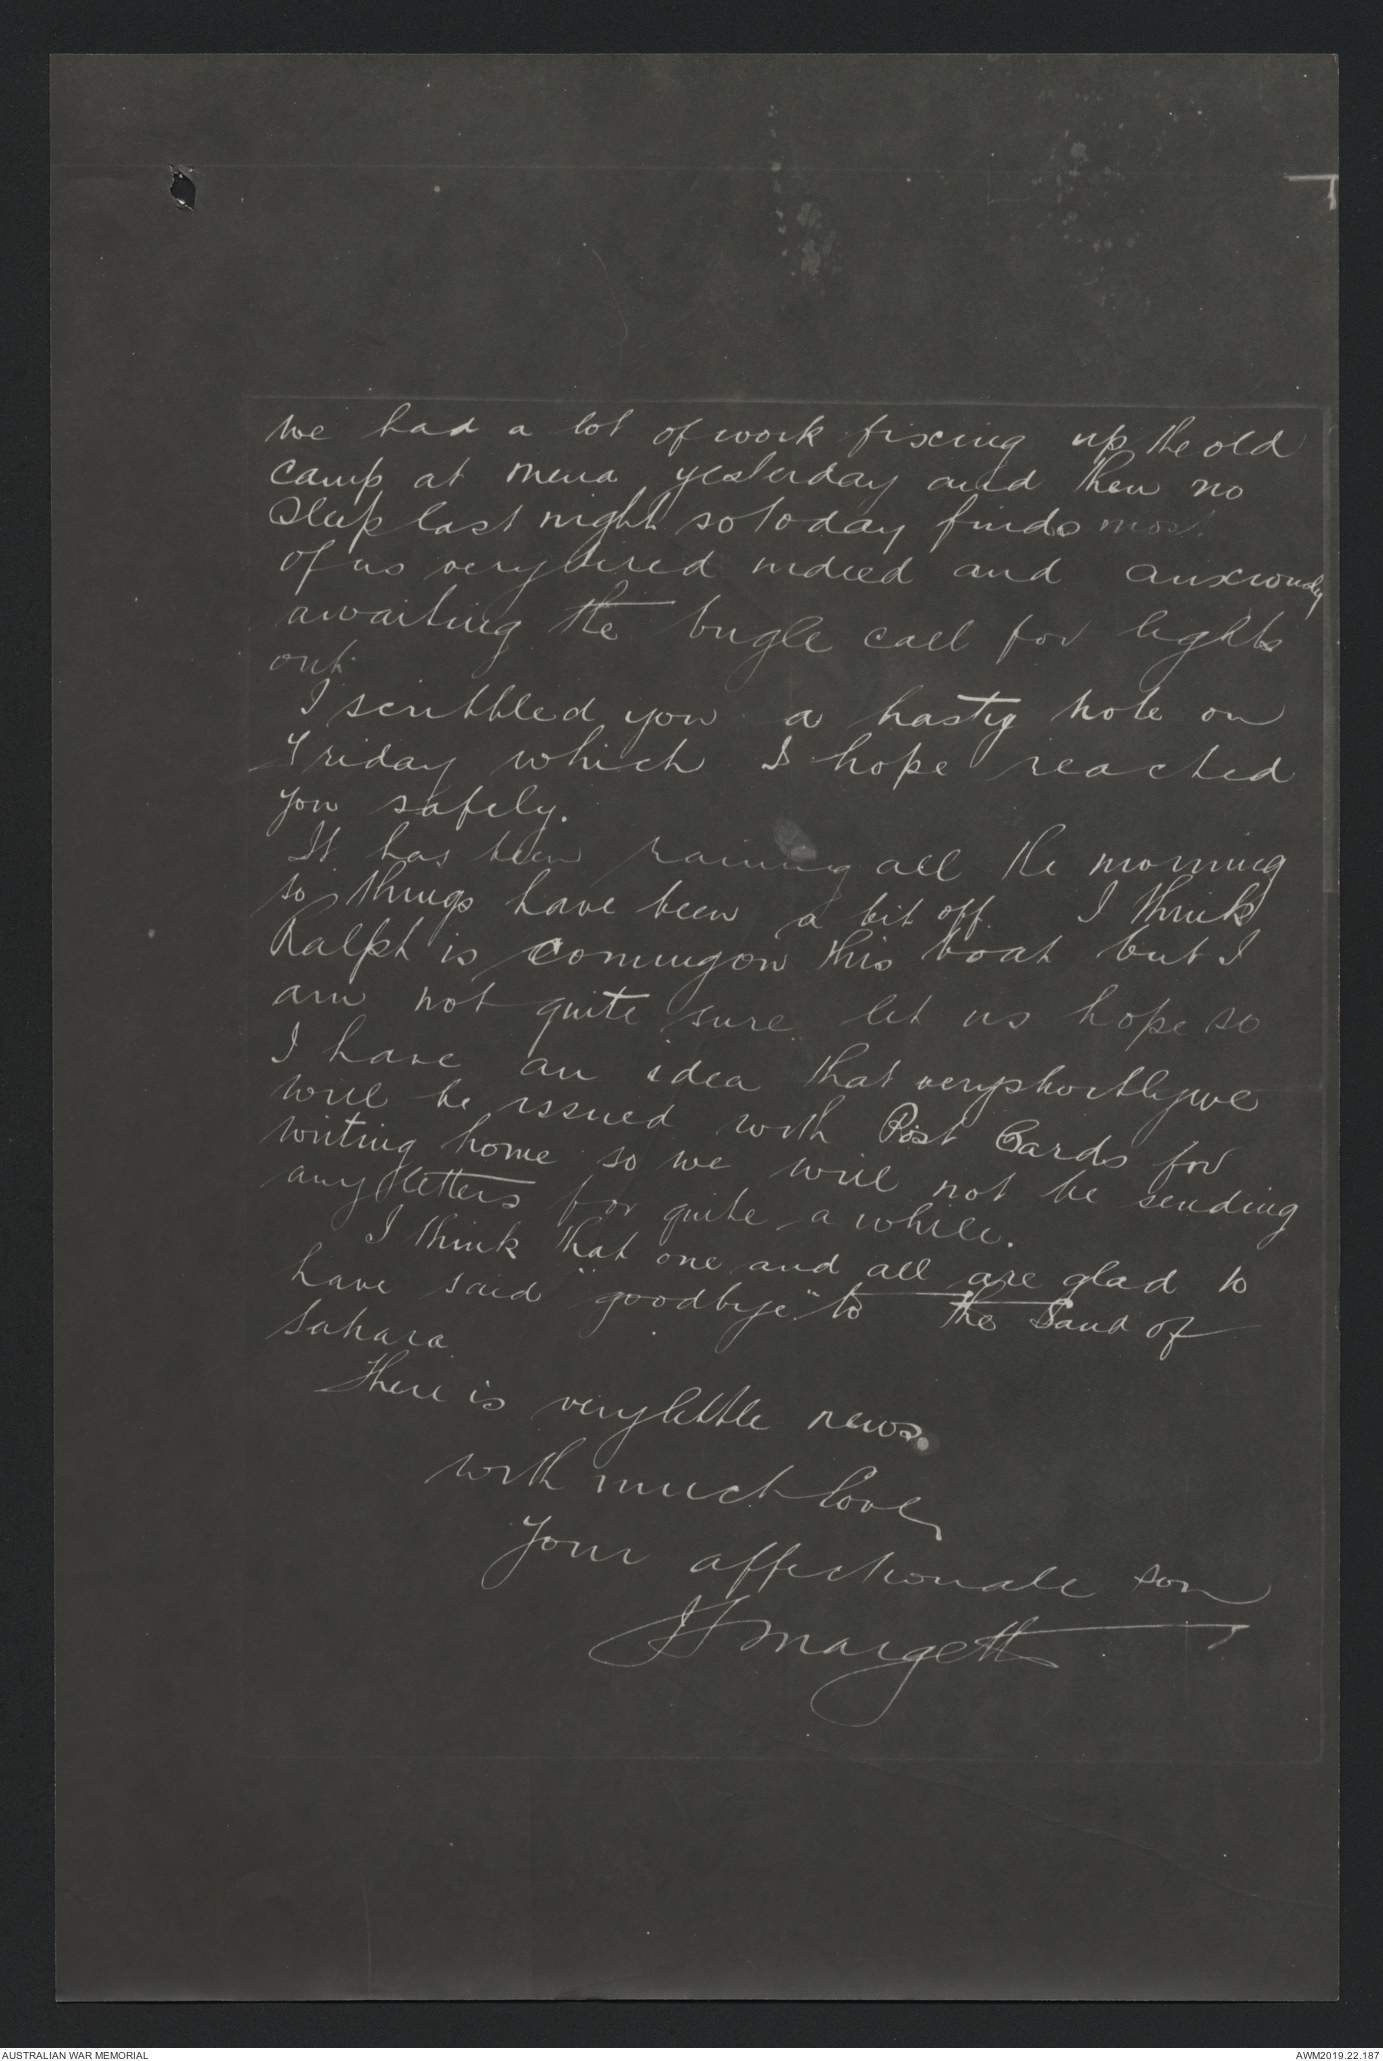 We had a lot of work fixing up the old
camp at Mena yesterday and then no
sleep last night so today finds most
of us very tired indeed and anxiously
awaiting the bugle call for lights
out.
I scribbled you a hasty note on
Friday which I hope reached
you safely.
It has been raining all the morning
so things have been a bit off. I think
Ralph is coming on this boat but I
am not quite sure let us hope so
I have an idea that very shortly we
will be issued with Post Cards for
writing home so we will not be sending
any letters for quite a while.
I think that one and all are glad to
have said "goodbye" to the Sand of
Sahara
There is very little news.
With much love,
Your affectionate son
Margetts
AUSTRALIAN WAR MEMORIAL
AWM2019.22.187